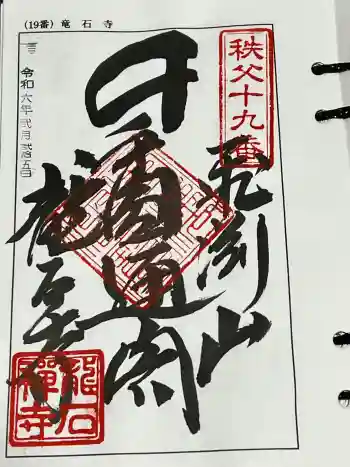 (19番) 竜石寺
秩父十九番
飛渕山
円通閣
龍石寺
令和六年弐月弐拾五日
龍石禪寺